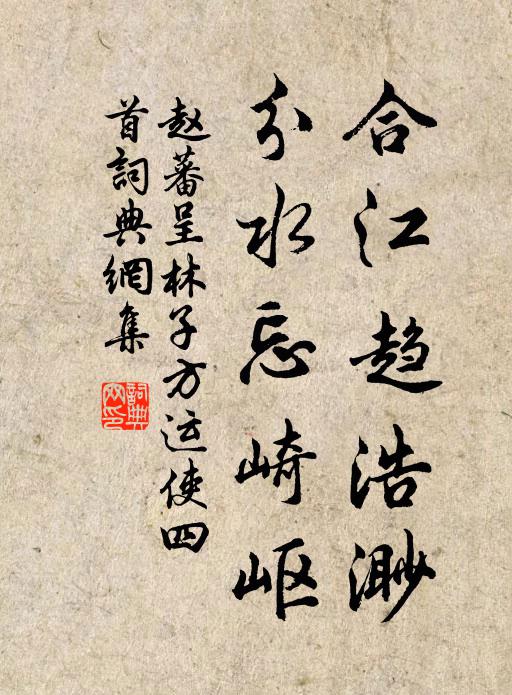 合江趋浩渺
分水忘崎岖
赵蕃呈林子方运使四
首詞典網集
詞典网印